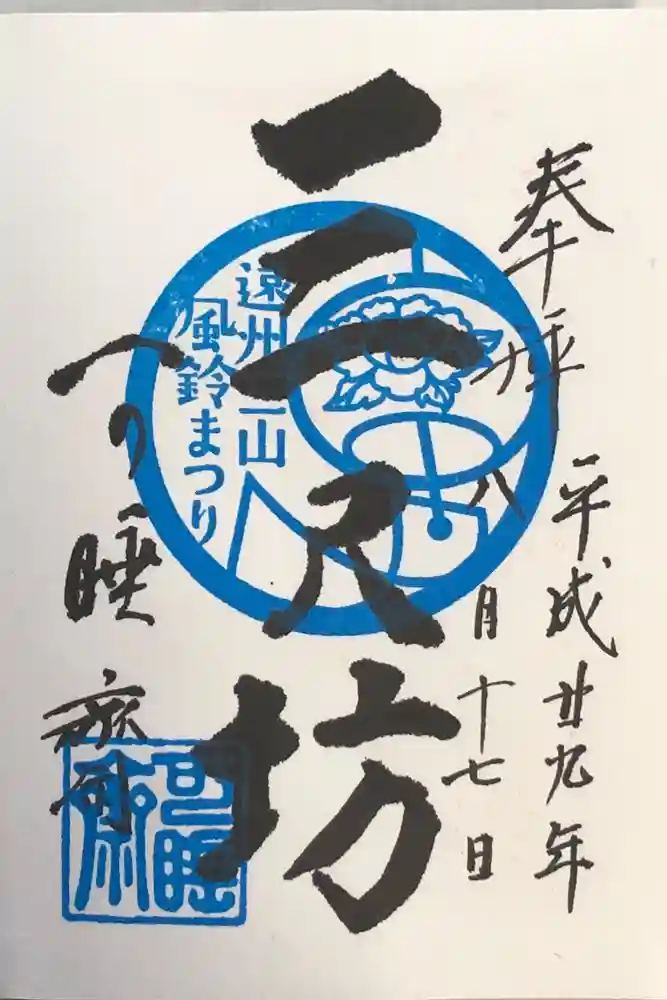 奉拝
平成廿九年
八月十七日
三尺坊
遠州三山
風鈴まつり
可睡齋
可睡
齋